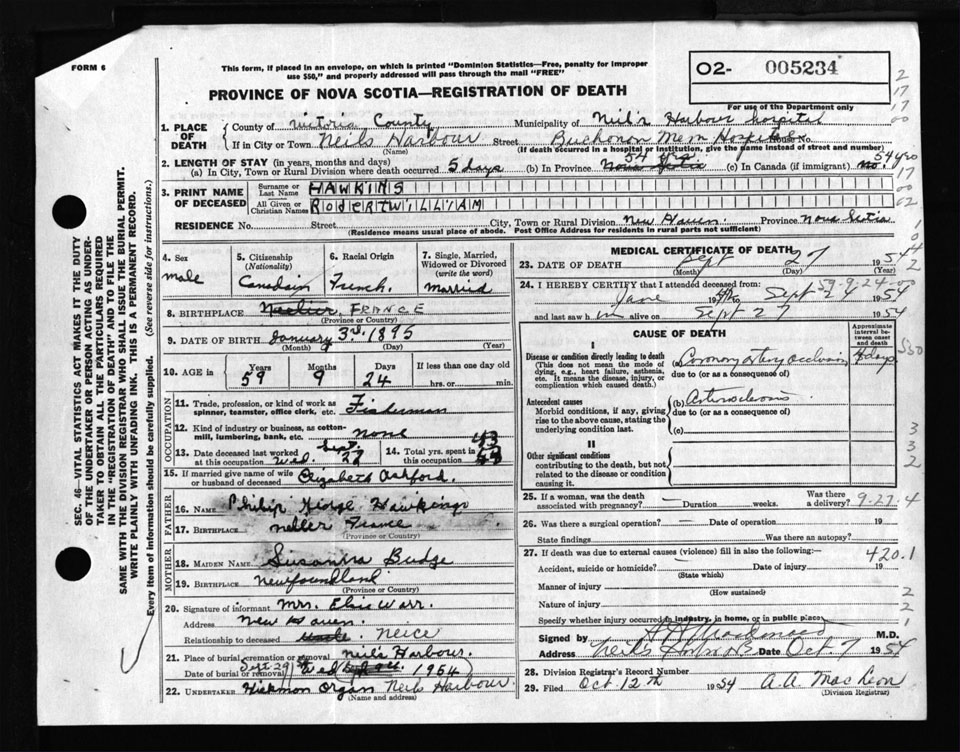 FORM 6
This form, if placed in an envelope, on which is printed "Dominion Statistics—Free, penalty for improper
use $50," and properly addressed will pass through the mail "FREE"
O2- 005234
PROVINCE OF NOVA SCOTIA—REGISTRATION OF DEATH
For use of the Department only
1. PLACE OF DEATH
County of Victoria County Municipality of Neil's Harbour hospital
If in City or Town Neils Harbour Street Buchonon Mem Hospital House No.
(Name) (If death occurred in a hospital or institution, give the name instead of street and number)
2. LENGTH OF STAY (in years, months and days)
(a) In City, Town or Rural Division where death occurred 5 days (b) In Province 54 yrs Nova Scotia (c) In Canada (if immigrant) no. 54 yrs
3. PRINT NAME OF DECEASED
Surname or Last Name HAWKINS
All Given or Christian Names ROBERT WILLIAM
RESIDENCE No. Street City, Town or Rural Division New Haven Province Nova Scotia
(Residence means usual place of abode. Post Office Address for residents in rural parts not sufficient)
4. Sex male
5. Citizenship (Nationality) Canadain
6. Racial Origin French.
7. Single, Married, Widowed or Divorced (write the word) Married
8. BIRTHPLACE FRANCE
(Province or Country)
9. DATE OF BIRTH January 3rd. 1895
(Month) (Day) (Year)
10. AGE in Years 59 Months 9 Days 24 If less than one day
hrs. or min.
OCCUPATION
11. Trade, profession, or kind of work as spinner, teamster, office clerk, etc. Fisherman
12. Kind of industry or business, as cotton-mill, lumbering, bank, etc. none
13. Date deceased last worked at this occupation Wed. Sept. 22
14. Total yrs. spent in this occupation 43
15. If married give name of wife or husband of deceased Elizabeth Ashford.
FATHER
16. NAME Philip George Hawkings
17. BIRTHPLACE France
(Province or Country)
MOTHER
18. MAIDEN NAME Susanna Budge
19. BIRTHPLACE Newfoundland
(Province or Country)
20. Signature of informant Mrs. Elsie Warr.
Address New Haven.
Relationship to deceased uncle. Neice
21. Place of burial, cremation or removal Neils Harbour.
Date of burial or removal Sept 29 Wed 1954
22. UNDERTAKER Hickmon Organ Neils Harbour.
(Name and address)
MEDICAL CERTIFICATE OF DEATH
23. DATE OF DEATH Sept 27 1954
(Month) (Day) (Year)
24. I HEREBY CERTIFY that I attended deceased from:
June 19 to Sept 27 1954
and last saw him alive on Sept 27 1954
CAUSE OF DEATH
Approximate interval between onset and death
I
Disease or condition directly leading to death
(This does not mean the mode of dying, e.g., heart failure, asthenia, etc. It means the disease, injury, or complication which caused death.)
(a) Coronary artery occlusion 4 days
due to (or as a consequence of)
Antecedent causes
Morbid conditions, if any, giving rise to the above cause, stating the underlying condition last.
(b) Arterosclerosis
due to (or as a consequence of)
(c)
II
Other significant conditions
contributing to the death, but not related to the disease or condition causing it.
25. If a woman, was the death associated with pregnancy? — Duration weeks. Was there a delivery? 9-27-4
26. Was there a surgical operation? — Date of operation 19
State findings Was there an autopsy?
27. If death was due to external causes (violence) fill in also the following:— 420.1
Accident, suicide or homicide? — Date of injury 19
(State which)
Manner of injury
(How sustained)
Nature of injury
Specify whether injury occurred in industry, in home, or in public place
Signed by M.D.
Address Neils Harbour NS Date Oct 7 1954
28. Division Registrar's Record Number
29. Filed Oct 12th 1954 A.A. MacLeon
(Division Registrar)
SEC. 46—VITAL STATISTICS ACT MAKES IT THE DUTY
OF THE UNDERTAKER OR PERSON ACTING AS UNDER-
TAKER TO OBTAIN ALL THE PARTICULARS REQUIRED
IN THE "REGISTRATION OF DEATH" AND TO FILE THE
SAME WITH THE DIVISION REGISTRAR WHO SHALL ISSUE THE BURIAL PERMIT.
WRITE PLAINLY WITH UNFADING INK. THIS IS A PERMANENT RECORD.
Every item of information should be carefully supplied. (See reverse side for instructions.)